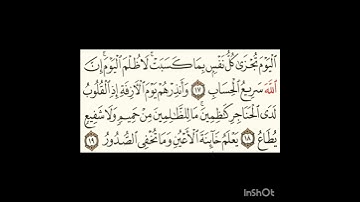 ٱلْيَوْمَ تُجْزَىٰ كُلُّ نَفْسٍۭ بِمَا كَسَبَتْ ۚ لَا ظُلْمَ ٱلْيَوْمَ ۚ إِنَّ
ٱللَّهَ سَرِيعُ ٱلْحِسَابِ ١٧ وَأَنذِرْهُمْ يَوْمَ ٱلْءَازِفَةِ إِذِ ٱلْقُلُوبُ
لَدَى ٱلْحَنَاجِرِ كَٰظِمِينَ ۚ مَا لِلظَّٰلِمِينَ مِنْ حَمِيمٍ وَلَا شَفِيعٍ
يُطَاعُ ١٨ يَعْلَمُ خَآئِنَةَ ٱلْأَعْيُنِ وَمَا تُخْفِى ٱلصُّدُورُ ١٩
InShOt